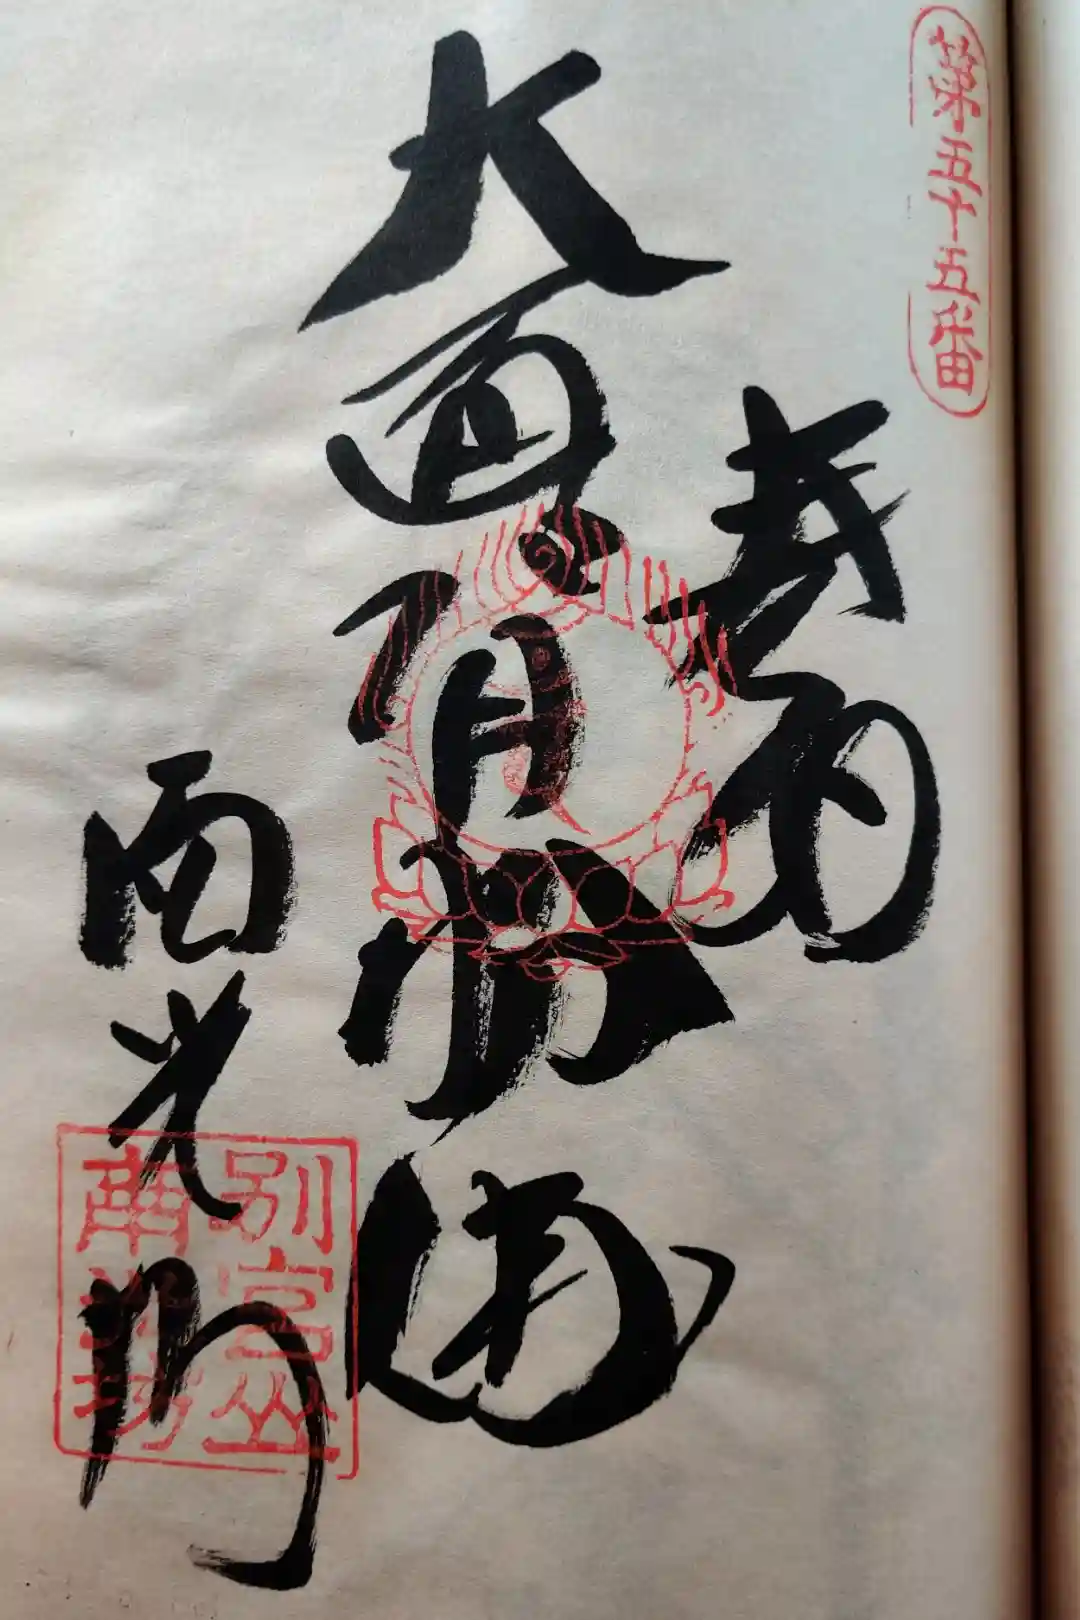 第五十五番
奉納
大通智勝佛
南光坊
別宮山
南光坊